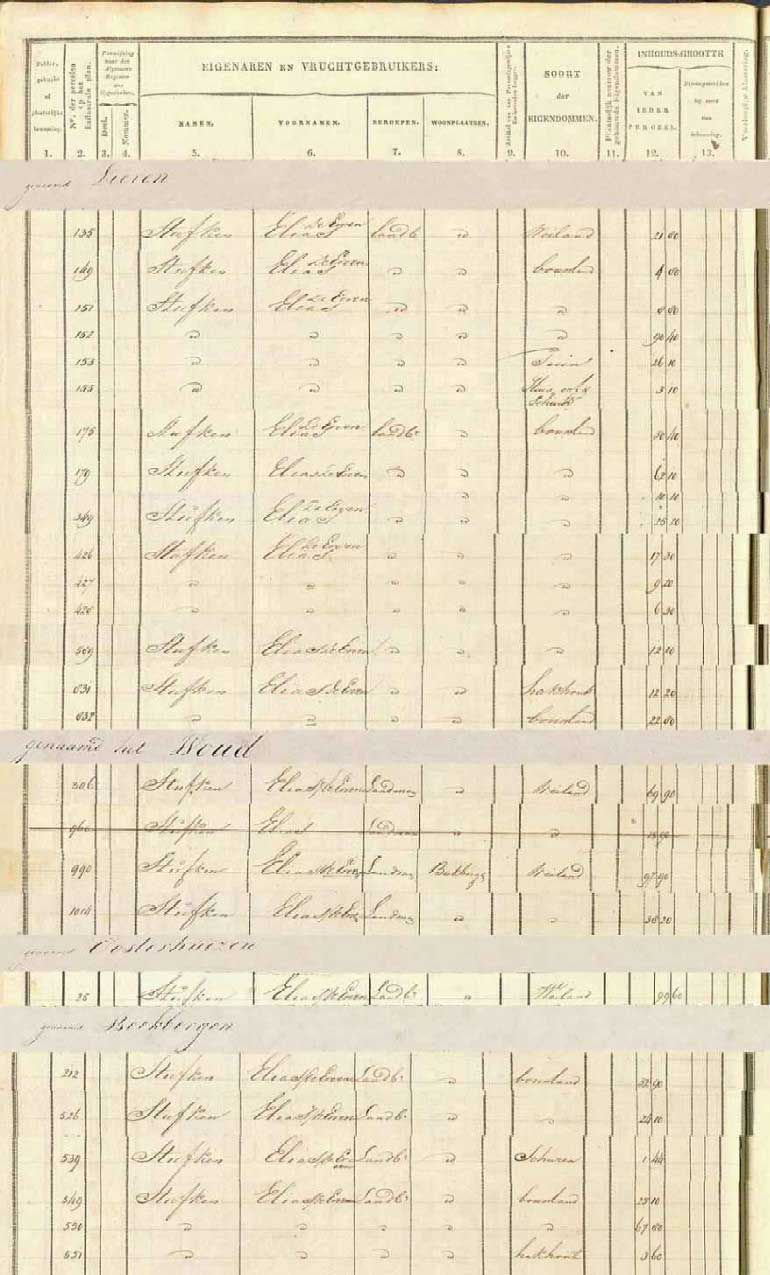 EIGENAREN EN VRUCHTGEBRUIKERS:
INHOUDS-GROOTTE
SOORT der EIGENDOMMEN.
VAN IEDER PERCEEL.
N.° der perceelen op het kadastrale plan.
Deel. Nommer. NAMEN. VOORNAMEN. BEROEPEN. WOONPLAATSEN.
1. 2. 3. 4. 5. 6. 7. 8. 9. 10. 11. 12. 13.
genaamd Lieren
135 Stufken Elias de Erven landb " Weiland 21 80
149 Stufken Elias de Erven " " bouwland 4 80
151 Stufken Elias de Erven " " " 8 80
152 " " " " " 90 40
153 " " " " Tuin 26 10
155 " " " " Huis erf & Schuur 3 10
175 Stufken Elias de Erven landbr " bouwland 80 40
179 Stufken Elias de Erven " " " 10
" " 10 10
349 Stufken Elias de Erven " " " 20
426 Stufken Elias de Erven " " " 17 30
427 " " " " " 9 20
428 " " " " " 6 30
559 Stufken Elias de Erven " " " 12 10
631 Stufken Elias de Erven " " hakhout 12 20
632 " " " " bouwland 22 80
genaamd het Woud
306 Stufken Elias de Erven Landman " Weiland 69 90
960 Stufken Elias Landman " "
990 Stufken Elias de Erven Landman Beekbergen Weiland 97 90
1014 Stufken Elias de Erven Landman " " 38 20
genaamd Oosterhuizen
25 Stufken Elias de Erven Landbr " Weiland 99 60
genaamd Beekbergen
212 Stufken Elias de Erven Landbr " bouwland 32 90
526 Stufken Elias de Erven Landbr " " 24 10
539 Stufken Elias de Erven Landbr " Schuren 1 44
549 Stufken Elias de Erven Landbr " bouwland 23 10
550 " " " " " 67 80
551 " " " " hakhout 3 60